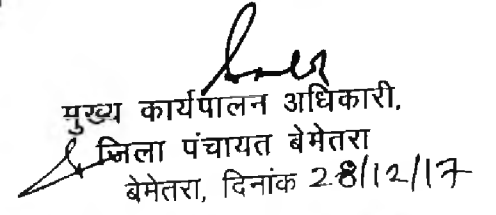 मुख्य कार्यपालन अधिकारी,
जिला पंचायत बेमेतरा
बेमेतरा, दिनांक 28/12/17